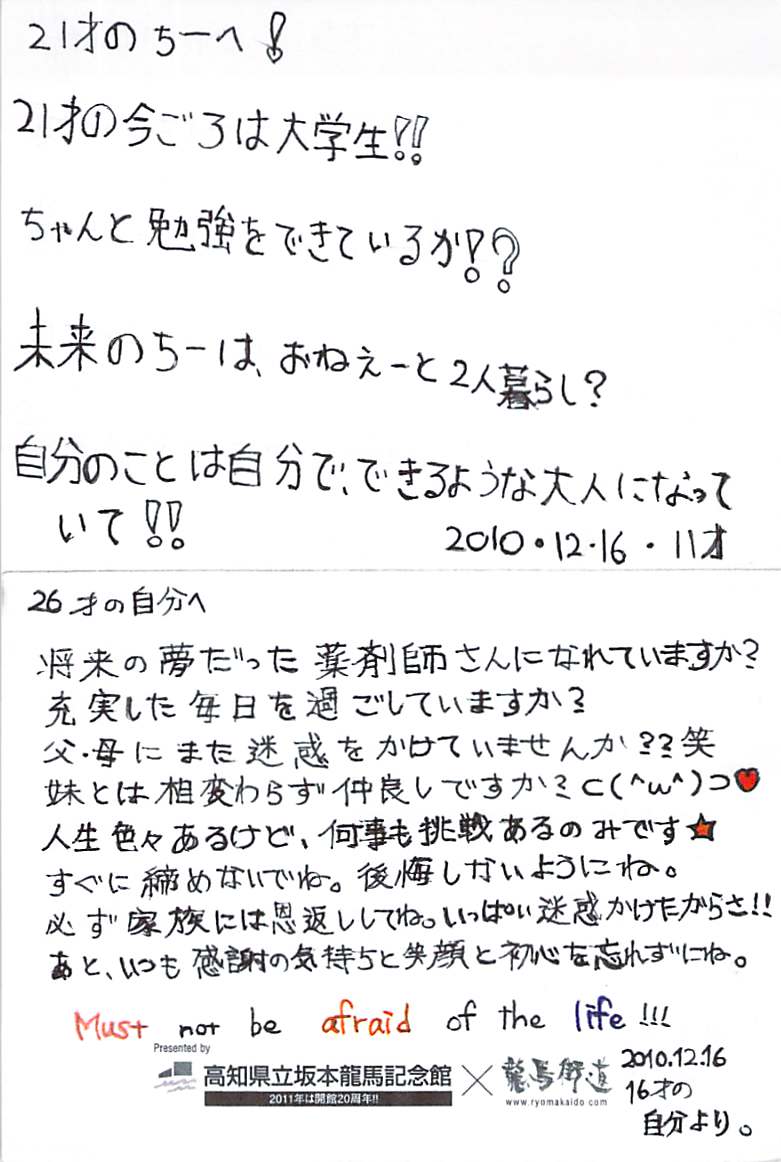 21才のちーへ!
21才の今ごろは大学生!!
ちゃんと勉強をできているか!?
未来のちーは、おねぇーと2人暮らし?
自分のことは自分で、できるような大人になって
いて!!
2010・12・16・11才
26才の自分へ
将来の夢だった薬剤師さんになれていますか?
充実した毎日を過ごしていますか?
父・母にまた迷惑をかけていませんか??笑
妹とは相変わらず仲良しですか?⊂(^ω^)⊃♥
人生色々あるけど、何事も挑戦あるのみです★
すぐに締めないでね。後悔しないようにね。
必ず家族には恩返ししてね。いっぱい迷惑かけたからさ!!
あと、いつも感謝の気持ちと笑顔と初心を忘れずにね。
Must not be afraid of the life!!!
Presented by
高知県立坂本龍馬記念館×龍馬街道
2011年は開館20周年!!
www.ryomakaido.com
2010.12.16
16才の
自分より。